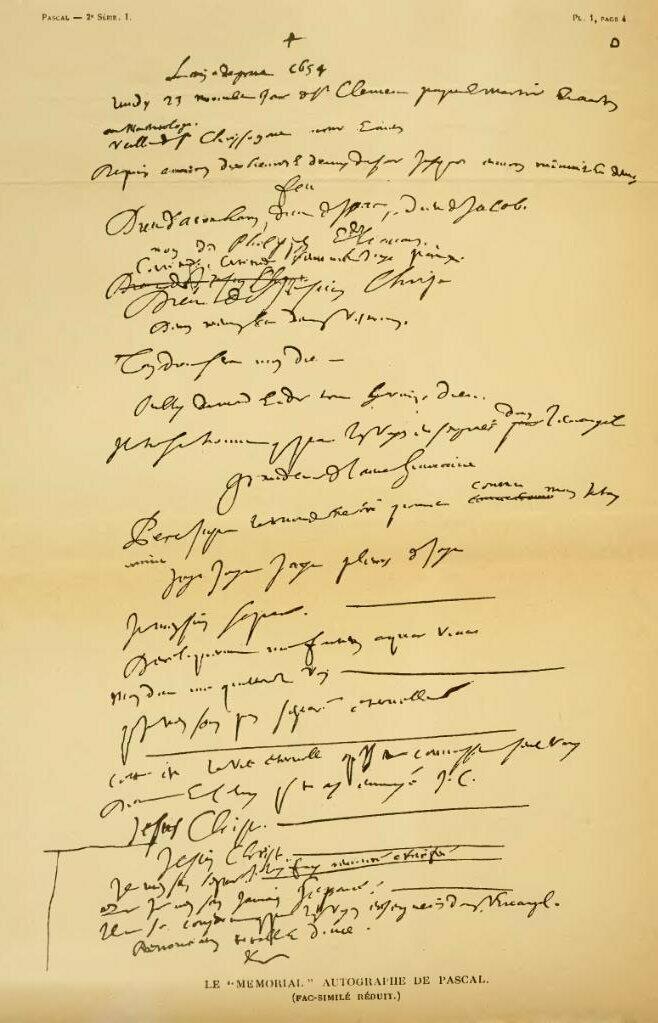 PASCAL — 2e SÉRIE. 1.
PL. 1, PAGE 4
L'an de grace 1654
Lundy 23 novembre jour de St Clement pape et martir et autres
au Martirologe
veille de St Chrisogone martir et autres
Depuis environ dix heures et demy du soir jusques environ minuit et demy
feu
Dieu d'Abraham, Dieu d'Isaac, Dieu de Jacob.
non des Philosophes et des scavans.
Certitude, certitude, sentiment, joye, paix.
Dieu de Jesus Christ
Deum meum et Deum vestrum.
Ton Dieu sera mon Die —
Oubly du monde et de tout hormis Dieu.
Il ne se trouve que par les voyes enseignées dans l'Evangile
Grandeur de l'ame humaine
Pere juste, le monde ne t'a point connu mais je t'ay
connu
Joye Joye Joye pleurs de joye
Je m'en suis separé.
Dereliquerunt me fontem aquae vivae
mon Dieu me quitterez vous
que je n'en sois pas separé eternellement
Cette est la vie eternelle qu'ils te connoissent seul vray
Dieu et celuy que tu as envoyé J.C.
Jesus Christ.
Jesus Christ.
Je m'en suis separé je l'ay fuy renoncé crucifié
que je n'en sois jamais separé.
Il ne se conserve que par les voyes enseignées dans l'Evangile.
Renonciation totale et douce.
LE "MEMORIAL" AUTOGRAPHE DE PASCAL.
(FAC-SIMILÉ RÉDUIT.)